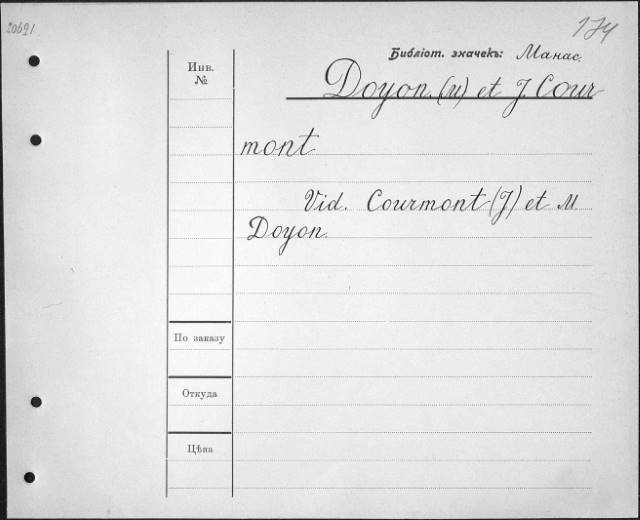 20621
174
Библіот. значекъ: Манас.
Инв.
№
Doyon. (M) et J. Cour
mont
Vid. Courmont (J) et M
Doyon.
По заказу
Откуда
Цѣна